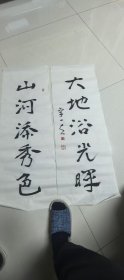 大地浴光晖
山河添秀色